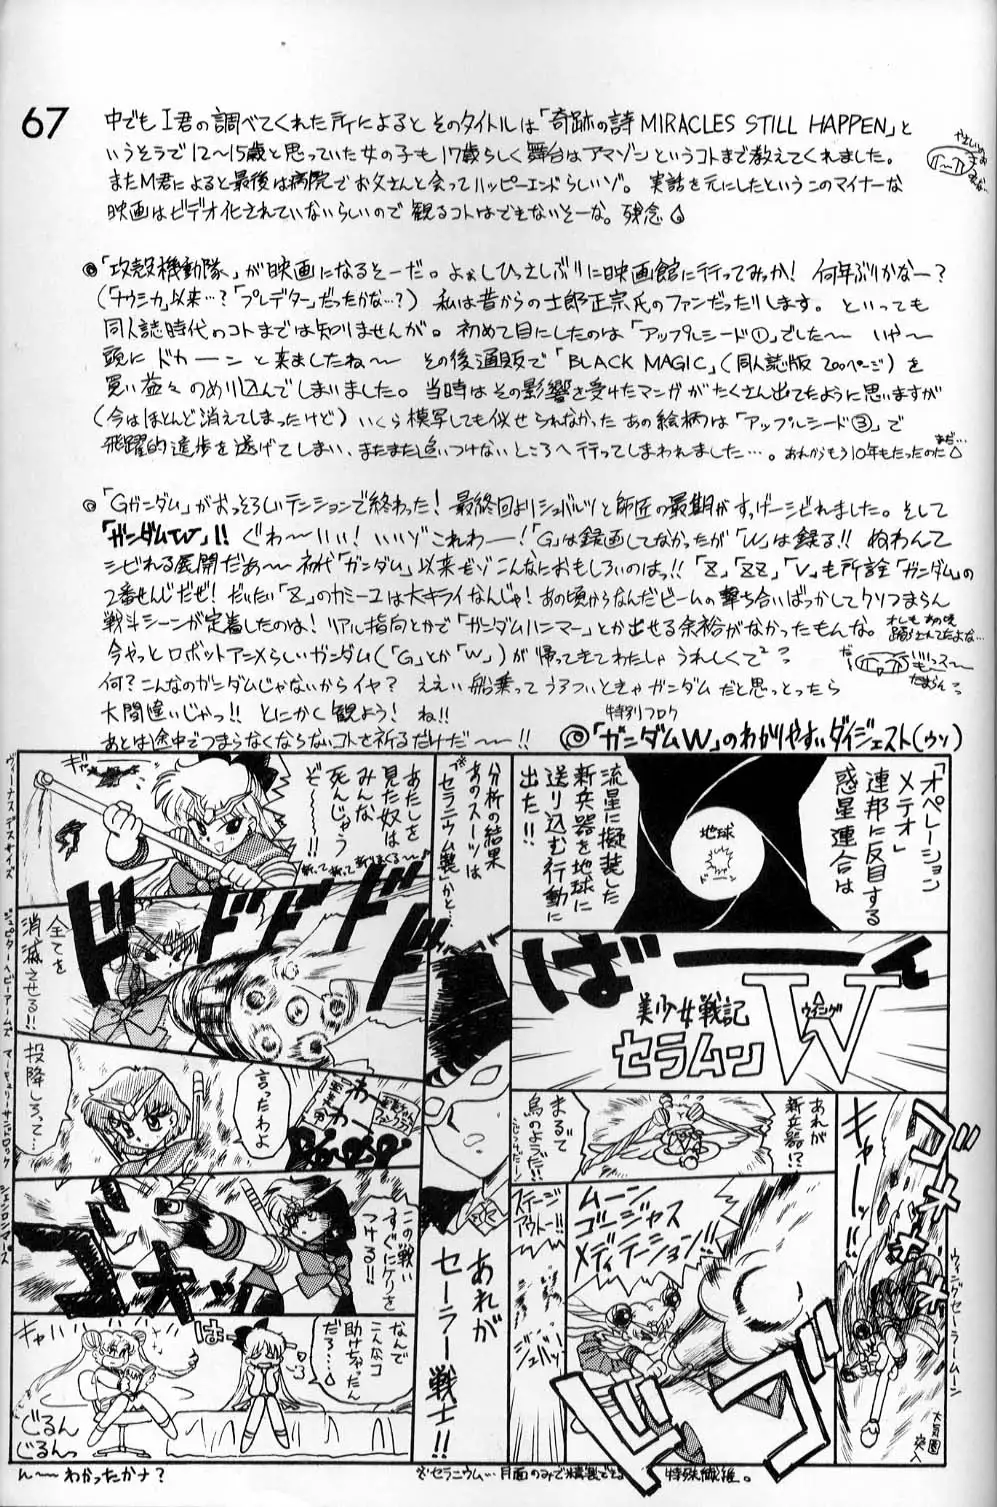 67
中でもI君の調べてくれた所によるとそのタイトルは「奇跡の詩 MIRACLES STILL HAPPEN」と
いうそうで12〜15歳と思っていた女の子も17歳らしく舞台はアマゾンというコトまで教えてくれました。
またM君によると最後は病院でお父さんと会ってハッピーエンドらしいゾ。実話を元にしたというこのマイナーな
映画はビデオ化されていないらしいので観るコトはできないそーな。残念
◎「攻殻機動隊」が映画になるそーだ。よぉしひっさしぶりに映画館に行ってみっか！何年ぶりかなー？
（「ナウシカ」以来…？「プレデター」だったかな…？）私は昔からの士郎正宗氏のファンだったりします。といっても
同人誌時代のコトまでは知りませんが。初めて目にしたのは「アップルシード①」でした〜 いや〜
頭にドカーンと来ましたね〜 その後通販で「BLACK MAGIC」（同人誌版200ページ）を
買い益々のめり込んでしまいました。当時はその影響を受けたマンガがたくさん出てたように思いますが
（今はほとんど消えてしまったけど）いくら模写しても似せられなかったあの絵柄は「アップルシード③」で
飛躍的進歩を遂げてしまい、またまた追いつけないところへ行ってしまわれました…。あれからもう10年もたったのだ
◎「Gガンダム」がおっそろしいテンションで終わった！最終回よりシュバルツと師匠の最期がすげーシビれました。そして
「ガンダムW」!! ぐわ〜いい！いいゾこれわー！「G」は録画してなかったが「W」は録る!! ぬわんて
シビれる展開だぁ〜 初代「ガンダム」以来だゾこんなにおもしろいのはっ!!「Z」、「ZZ」、「V」も所詮「ガンダム」の
2番せんじだぜ！だいたい「Z」のカミーユは大キライなんじゃ！あの頃からなんだビームの撃ち合いばっかしてクソつまらん
戦斗シーンが定着したのは！リアル指向とかで「ガンダムハンマー」とか出せる余裕がなかったもんな。
今やっとロボットアニメらしいガンダム（「G」とか「W」）が帰ってきてわたしゃうれしくて
何？こんなのガンダムじゃないからイヤ？ええい船乗ってうろついときゃガンダムだと思っとったら
大間違いじゃっ!! とにかく観よう！ね!!
あとは途中でつまらなくならないコトを祈るだけだ〜!!
特別フロク
◎「ガンダムW」のわかりやすいダイジェスト（ウソ）
「オペレーション
メテオ」
連邦に反目する
惑星連合は
地球
ドーン
流星に擬装した
新兵器を地球に
送り込む行動に
出た!!
ばーーん
美少女戦記
セラムーン
W
ウイング
ウィングセーラームーン
キャー!!
ゴオオオオ
大気圏
突入
あれが
新兵器!?
まるで
鳥のようだ!!
ムーン
ゴージャス
メディテーション!!
ドゴ
ステージ
アウトー!!
ジュバッ
分析の結果
あのスーツは
※セラニウム製だかと…
あれが
セーラー戦士!!
ヴィーナスデスサイズ
ギャー
あたしを
見た奴は
みんな
死んじゃう
ぞ〜
ジュピターヘビーアームズ
ドドドド
全てを
消滅させる!!
マーキュリーサンドロック
投降しろって…
言ったわよ
わー
わー
シェンロンマーズ
ゴオオッ
この戦い
すぐにケリを
つける!!
キャハハハ
じろん
じろんっ
はー
なんで
こんなコ
助けちゃったん
だろ…
ん〜わかったかナ？
※セラニウム…月面のみで精製できる特殊繊維。